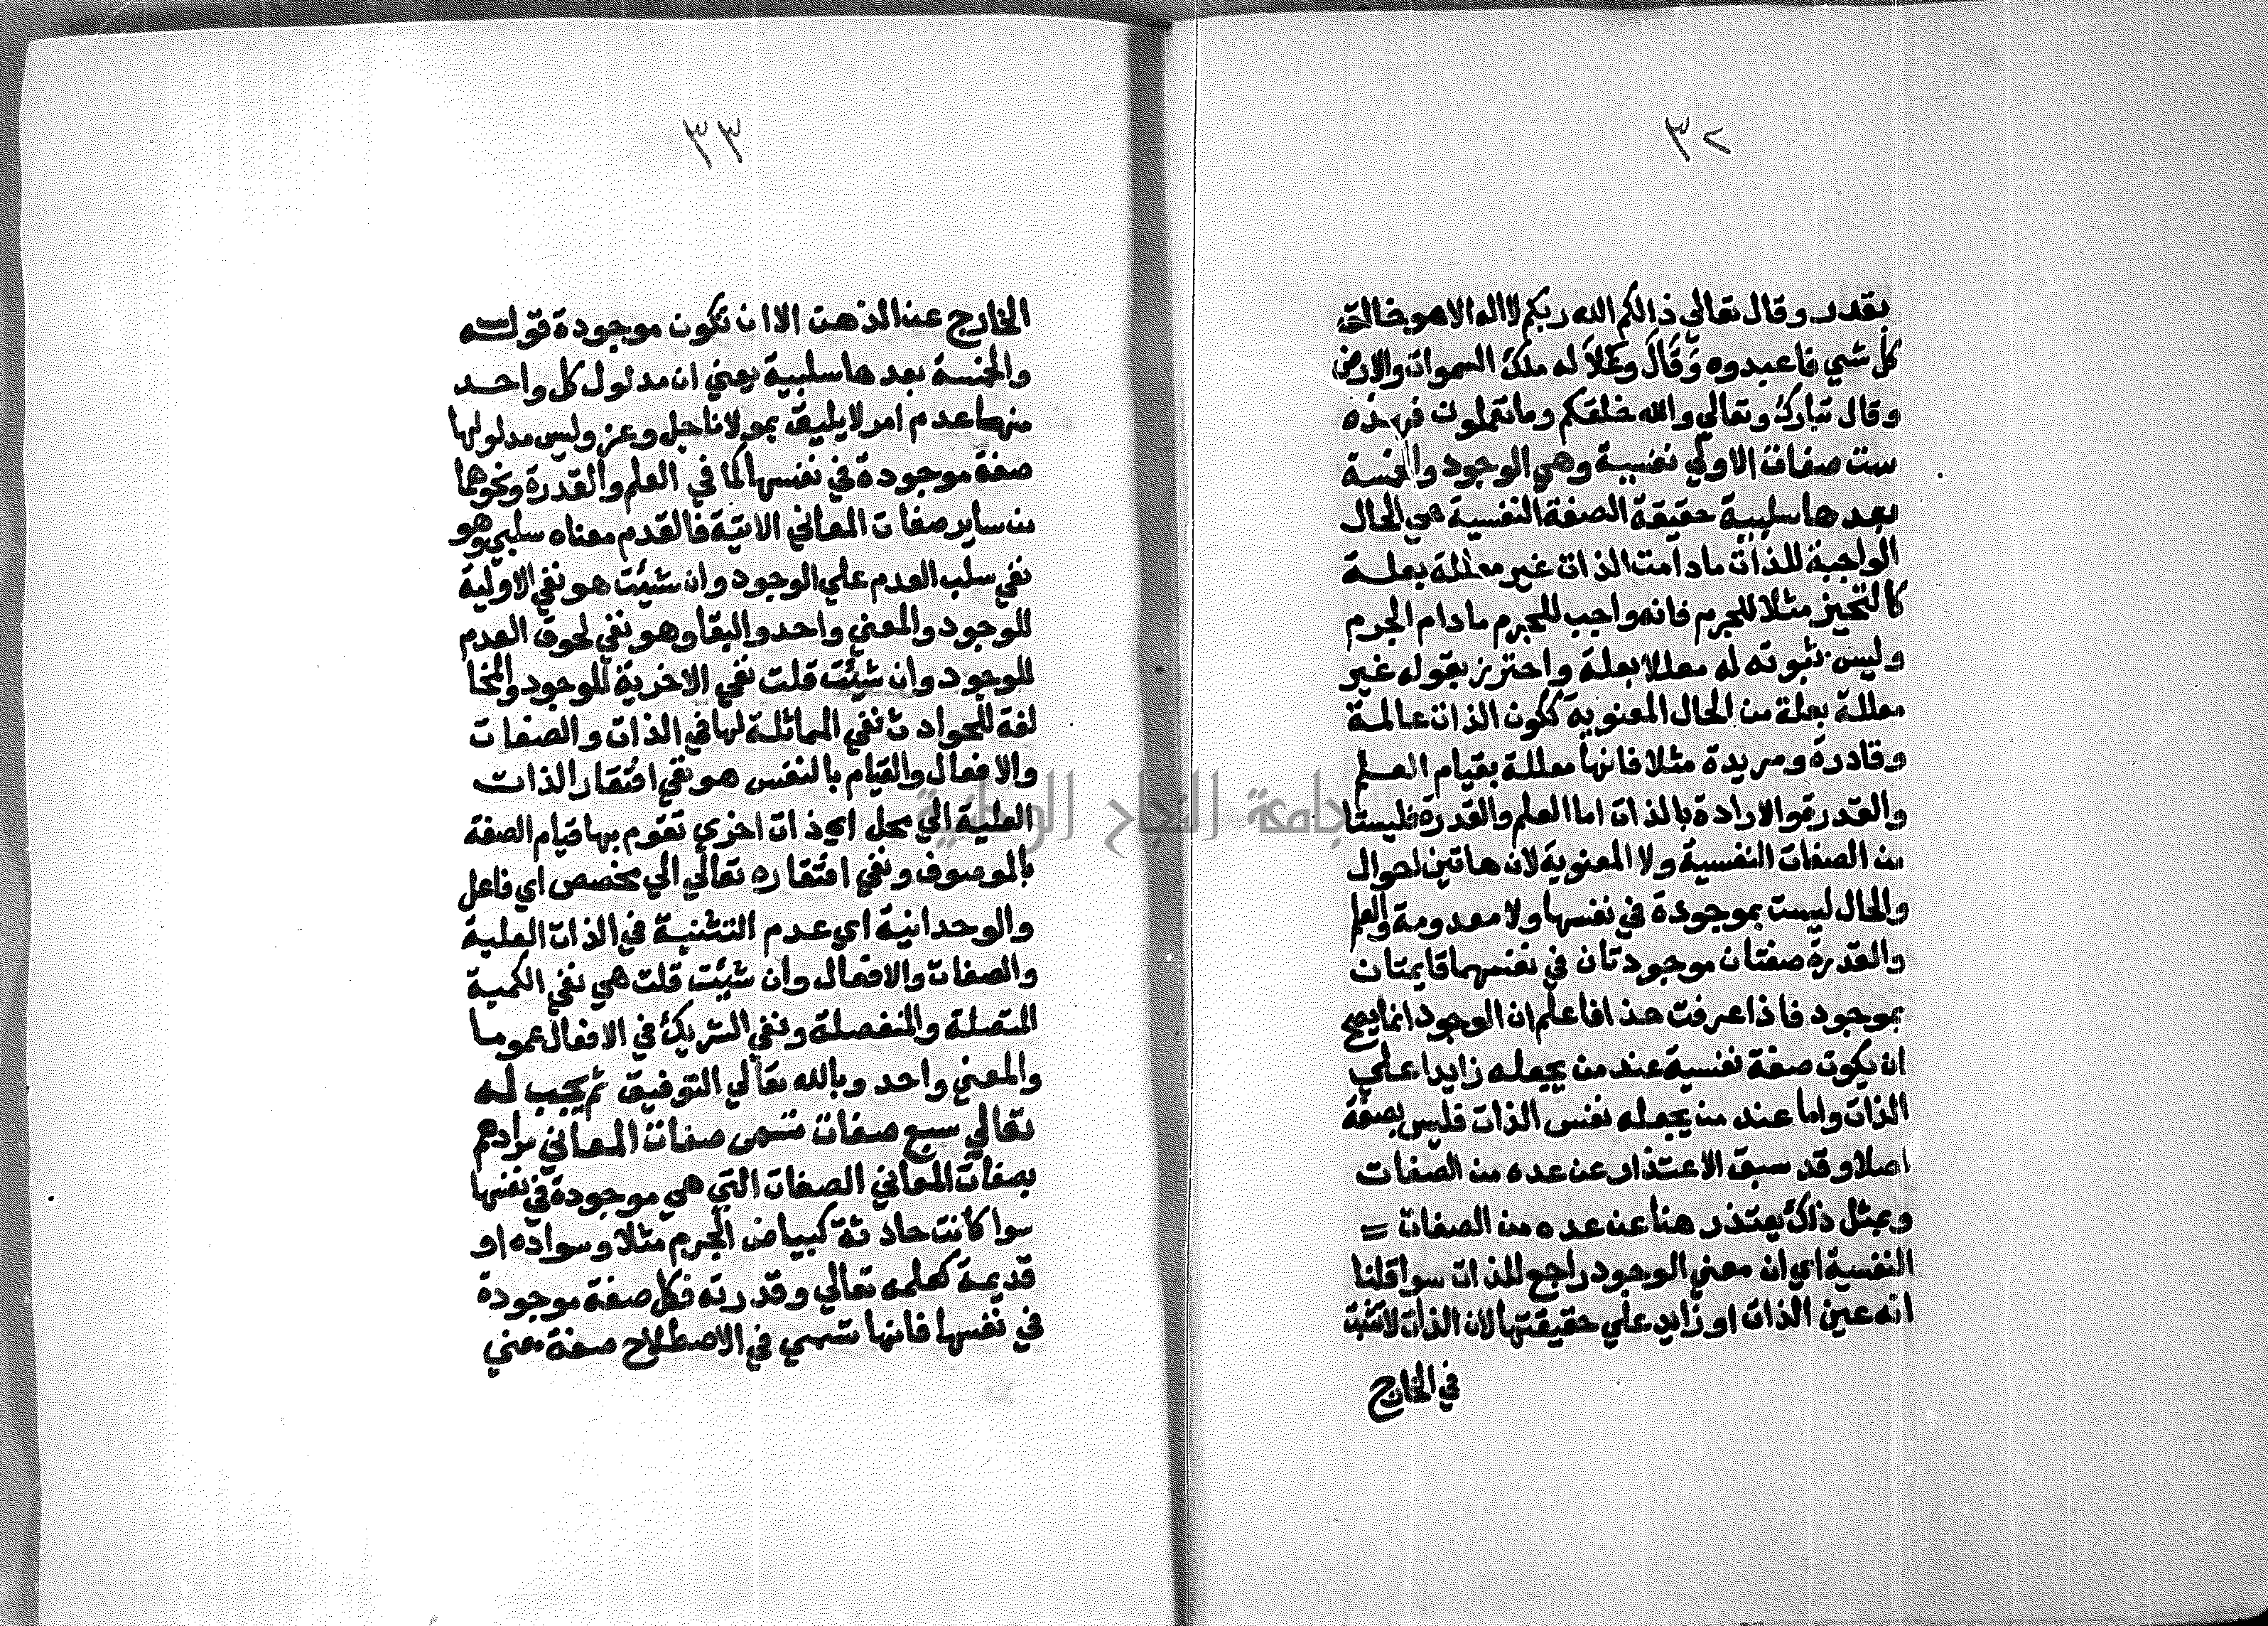 ٣٢
بقدر وقال تعالي ذالكم الله ربكم لا اله الا هو خالق
كل شي فاعبدوه وَقَالَ وعَلاَ له ملك السموات والارض
وقال تبارك وتعالي والله خلقكم وما تعملون فهذه
ست صفات الاولي نفسية وهي الوجود والخمسة
بعدها سلبية حقيقة الصفة النفسية هي الحال
الواجبة للذات مادامت الذات غير معللة بعلة
كالتحيز مثلا للجرم فانه واجب للجرم مادام الجرم
وليس ثبوته له معللا بعلة واحترز بقوله غير
معللة بعلة من الحال المعنوية ككون الذات عالمة
وقادرة ومريدة مثلا فانها معللة بقيام العلم
والقدرة والارادة بالذات اما العلم والقدرة فليستا
من الصفات النفسية ولا المعنوية لان هاتين احوال
والحال ليست بموجودة في نفسها ولا معدومة والعلم
والقدرة صفتان موجودتان في نفسهما قايمتان
بموجود فاذا عرفت هذا فاعلم ان الوجود انما يصح
ان يكون صفة نفسية عند من يجعله زايدا علي
الذات واما عند من يجعله نفس الذات فليس بصفة
اصلا وقد سبق الاعتذار عن عده من الصفات
وبمثل ذلك يعتذر هنا عن عده من الصفات =
النفسية اي ان معني الوجود راجع للذات سوا قلنا
انه عين الذات او زايد علي حقيقتها لان الذات لا تثبت
في الخارج
٣٣
الخارج عن الذهن الا ان تكون موجودة قوله
والخمسة بعدها سلبية يعني ان مدلول كل واحد
منها عدم امر لا يليق بمولانا جل وعز وليس مدلولها
صفة موجودة في نفسها كما في العلم والقدرة ونحوهما
من ساير صفات المعاني الاتية فالقدم معناه سلبي وهو
نفي سلب العدم علي الوجود وان شيئت هو نفي الاولية
للوجود والمعني واحد والبقا وهو نفي لحوق العدم
للوجود وان شيئت قلت نفي الاخرية للوجود والمخا
لفة للحوادث نفي المماثلة لها في الذات والصفات
والافعال والقيام بالنفس هو نفي افتقار الذات
العلية الي محل اي ذات اخري تقوم بها قيام الصفة
بالموصوف ونفي افتقاره تعالي الي مخصص اي فاعل
والوحدانية اي عدم التثنية في الذات العلية
والصفات والافعال وان شيئت قلت هي نفي الكمية
المتصلة والمنفصلة ونفي الشريك في الافعال عموما
والمعني واحد وبالله تعالي التوفيق ثم يجب له
تعالي سبع صفات تسمى صفات المعاني مرادهم
بصفات المعاني الصفات التي هي موجودة في نفسها
سوا كانت حادثة كبياض الجرم مثلا وسواده او
قديمة كعلمه تعالي وقدرته فكل صفة موجودة
في نفسها فانها تسمي في الاصطلاح صفة معني
جامعة النجاح الوطنية